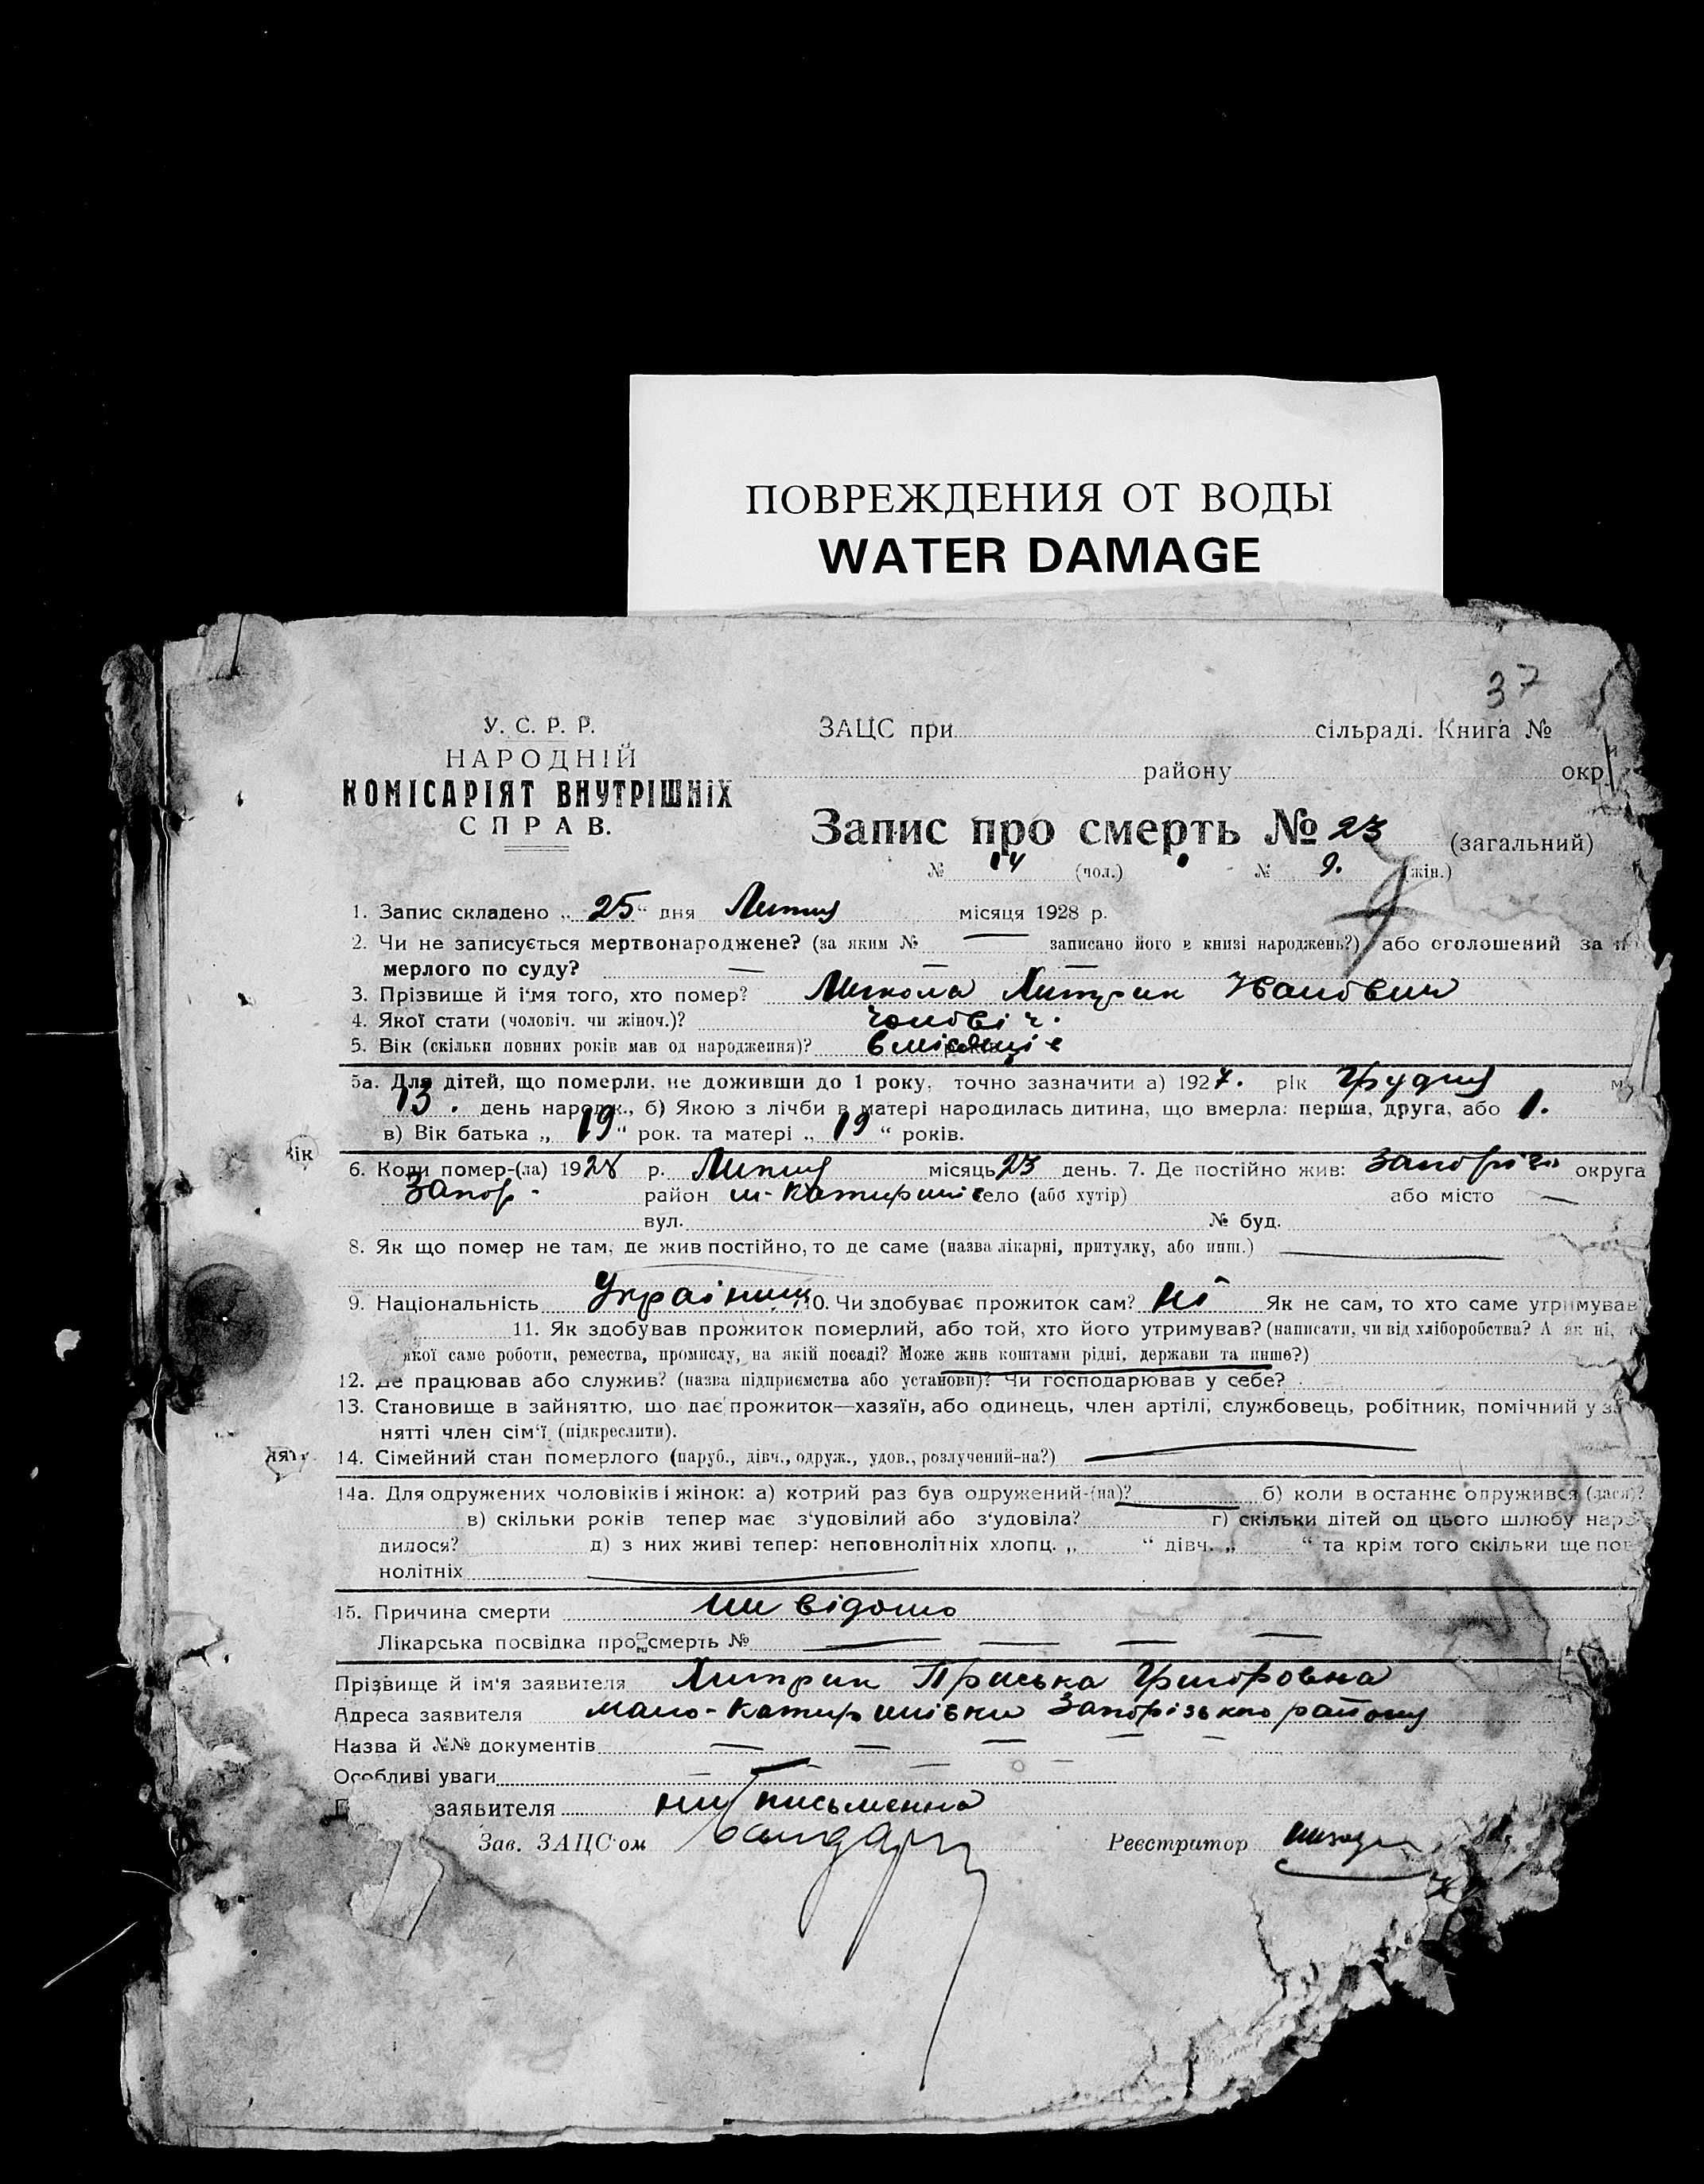 ПОВРЕЖДЕНИЯ ОТ ВОДЫ
WATER DAMAGE
37
У. С. Р. Р.
НАРОДНІЙ
КОМІСАРІЯТ ВНУТРІШНІХ
СПРАВ.
ЗАЦС при сільраді. Книга №
району окр
Запис про смерть № 23 (загальний)
№ 14 (чол.) № 9. (жін.)
1. Запис складено „25“ дня Липня місяця 1928 р.
2. Чи не записується мертвонароджене? (за яким № — записано його в книзі народжень?) або оголошений за п
мерлого по суду? — — —
3. Прізвище й і'мя того, хто помер? Микола Хитрик Іванович
4. Якої стати (чоловіч. чи жіноч.)? чоловіч.
5. Вік (скільки повних років мав од народження)? 6 місяців
5а. Для дітей, що померли, не доживши до 1 року, точно зазначити а) 1927. рік Грудня м
13. день народж., б) Якою з лічби в матері народилась дитина, що вмерла: перша, друга, або 1.
в) Вік батька „19“ рок. та матері „19“ років.
ік
6. Коли помер-(ла) 1928 р. Липня місяць 23 день. 7. Де постійно жив: Запоріз округа
Запор. район м-Катиршів село (або хутір) або місто —
вул. № буд.
8. Як що помер не там, де жив постійно, то де саме (назва лікарні, притулку, або инш.)
9. Національність Українец 10. Чи здобував прожиток сам? Ні Як не сам, то хто саме утримував
11. Як здобував прожиток померлий, або той, хто його утримував? (написати, чи від хліборобства? А як ні,
якої саме роботи, ремества, промислу, на якій посаді? Може жив коштами рідні, держави та инше?)
12. Де працював або служив? (назва підприємства або установи)? Чи господарював у себе?
13. Становище в зайняттю, що дає прожиток—хазяїн, або одинець, член артілі, службовець, робітник, помічний у за
нятті член сім'ї (підкреслити).
14. Сімейний стан померлого (паруб., дівч., одруж., удов., розлучений-на?)
14а. Для одружених чоловіків і жінок: а) котрий раз був одружений-(на)? б) коли в останнє одружився (лася)?
в) скільки років тепер має з'удовілий або з'удовіла? г) скільки дітей од цього шлюбу наро
дилося? д) з них живі тепер: неповнолітніх хлопц. „ “ дівч. „ “ та крім того скільки ще пов
нолітніх
15. Причина смерти ни відомо
Лікарська посвідка про смерть № — — — —
Прізвище й ім'я заявителя Хитрик Приська Григоровна
Адреса заявителя мало-Катиршівки Запорізького району
Назва й №№ документів — — — — —
Особливі уваги — — —
заявителя ни письменна
Зав. ЗАЦС'ом
Реєстратор